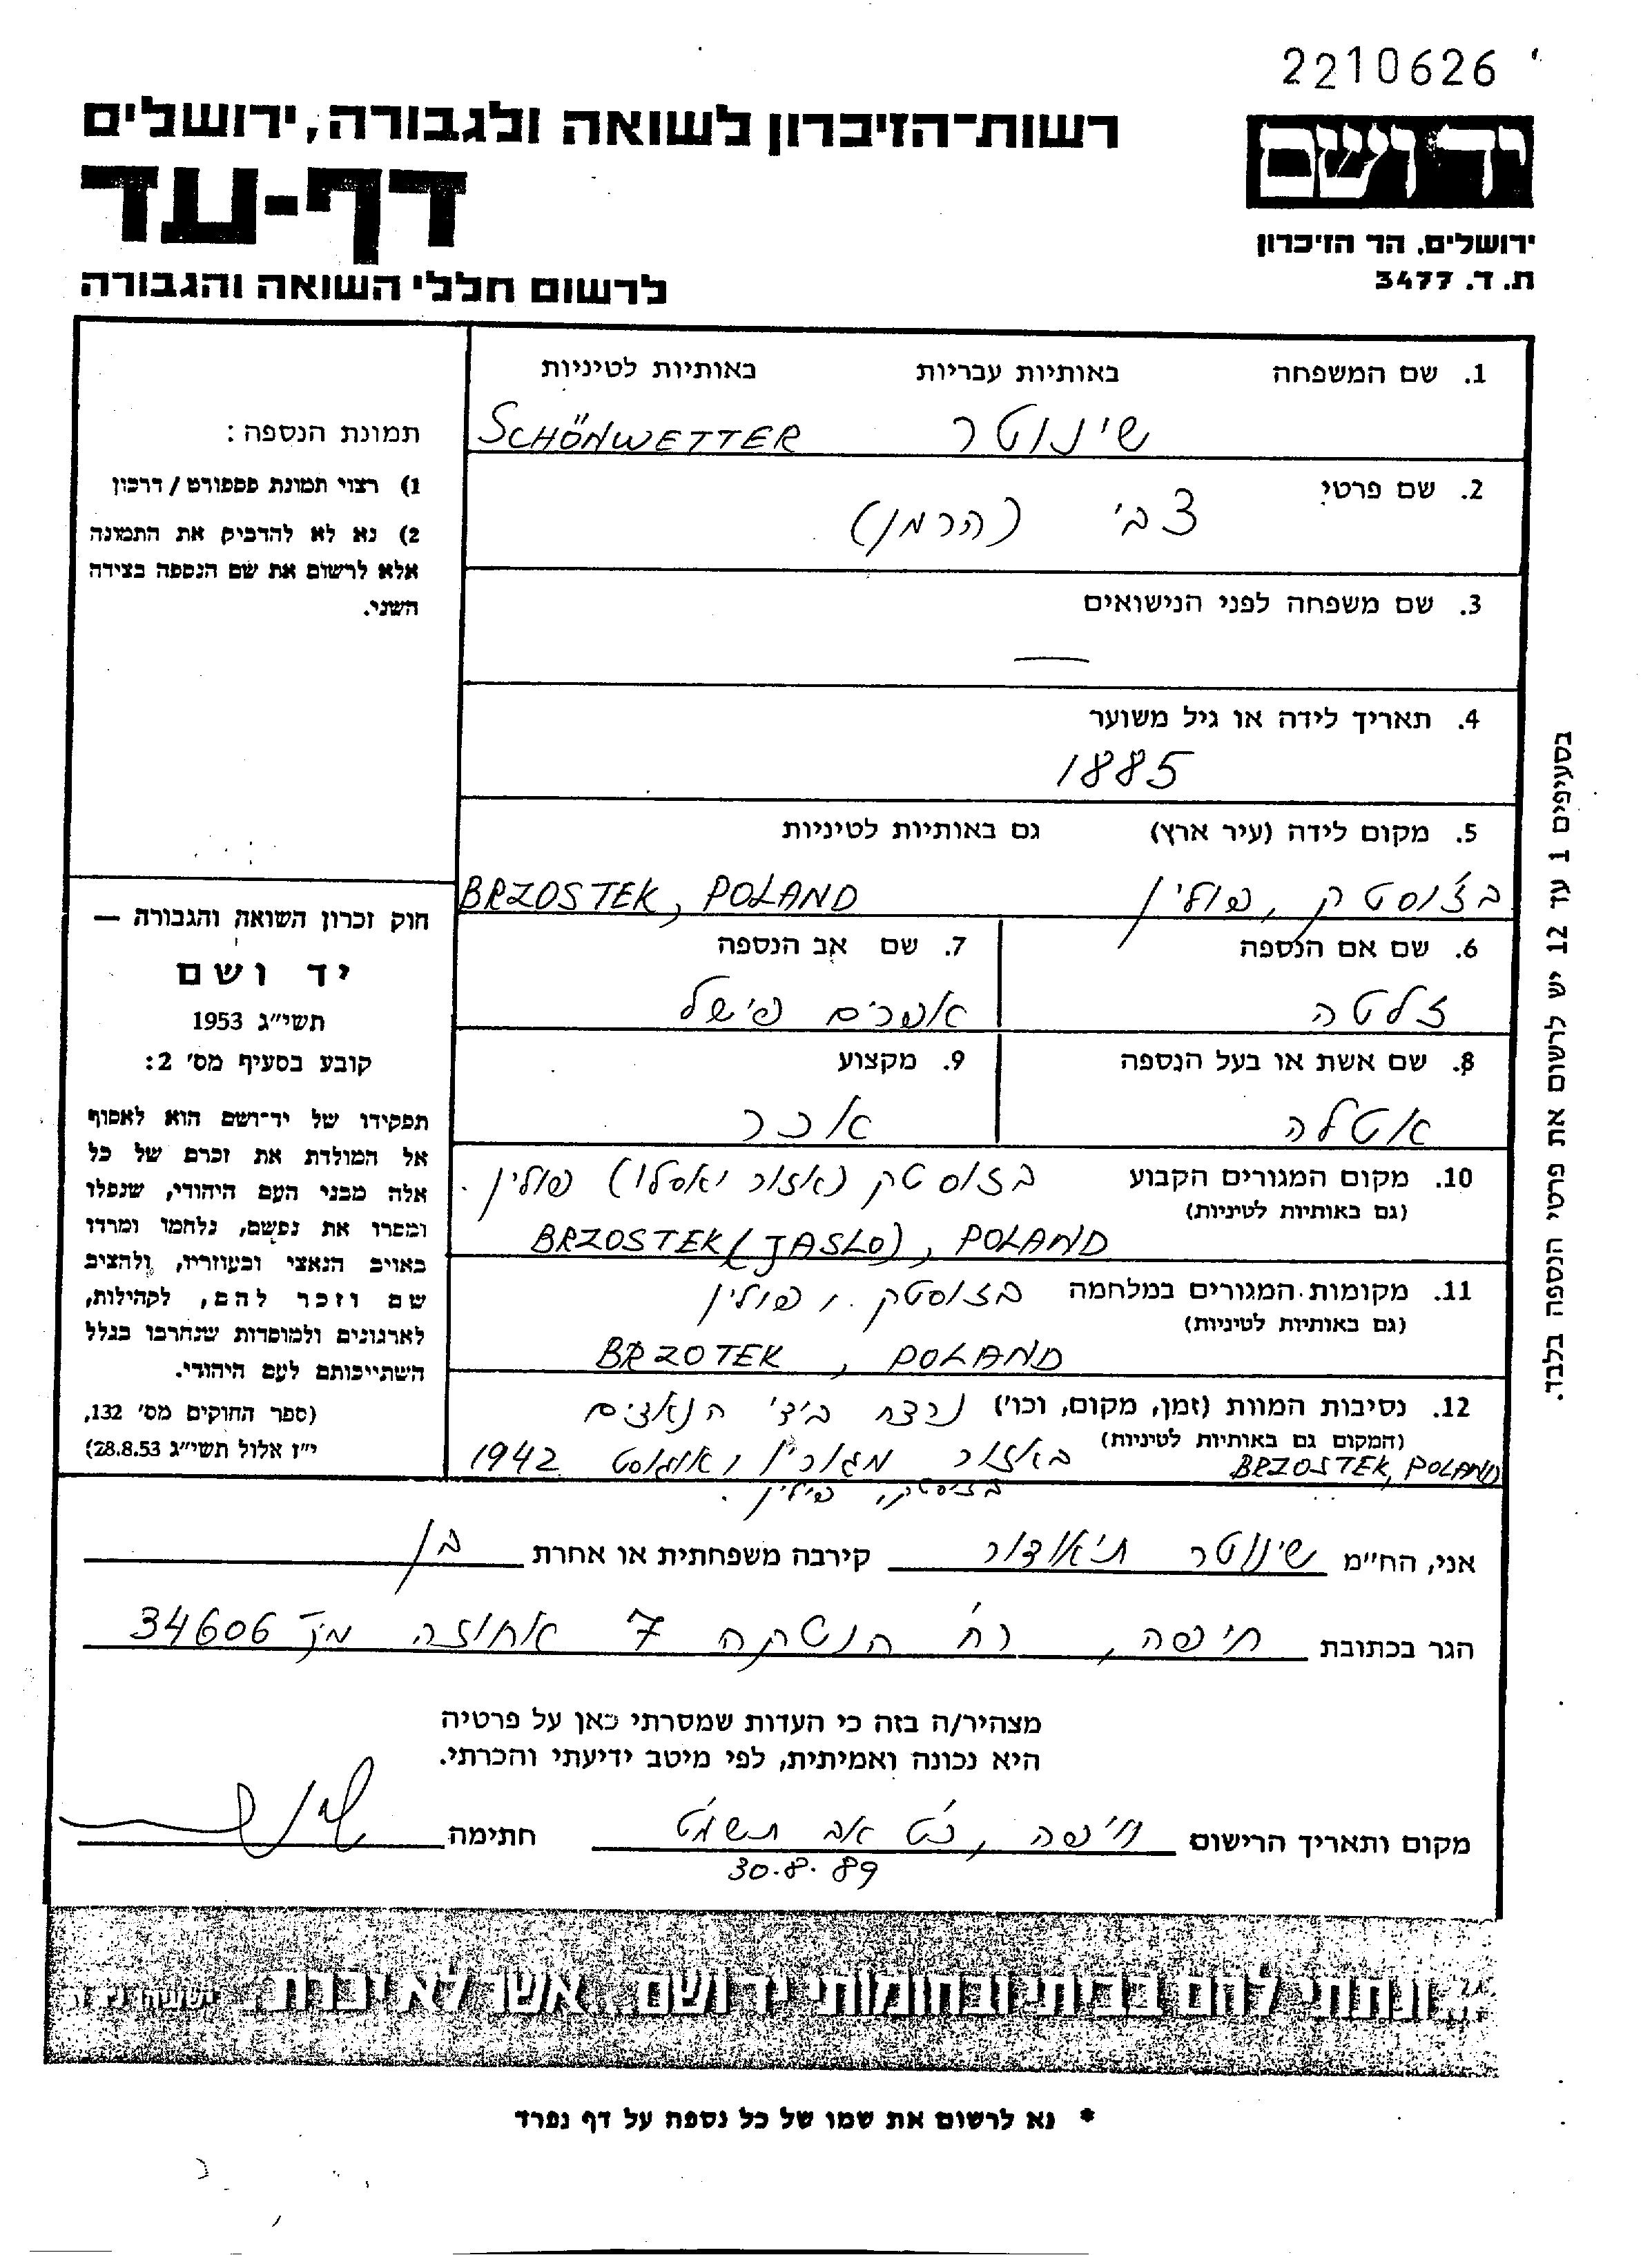 2210626
יד ושם
ירושלים, הר הזיכרון
ת. ד. 3477
רשות-הזיכרון לשואה ולגבורה, ירושלים
דף-עד
לרשום חללי השואה והגבורה
1. שם המשפחה באותיות עבריות באותיות לטיניות
שינוטר SCHÖNWETTER
2. שם פרטי
צבי (הרמן)
3. שם משפחה לפני הנישואים
—
4. תאריך לידה או גיל משוער
1885
5. מקום לידה (עיר ארץ) גם באותיות לטיניות
בז'וסטק, פולין BRZOSTEK, POLAND
6. שם אם הנספה 7. שם אב הנספה
זלטה אפרים פישל
8. שם אשת או בעל הנספה 9. מקצוע
אטלה אכר
10. מקום המגורים הקבוע בזוסטק (אזור יאסלו) פולין.
(גם באותיות לטיניות)
BRZOSTEK (JASLO), POLAND
11. מקומות המגורים במלחמה בזוסטק, פולין
(גם באותיות לטיניות)
BRZOTEK, POLAND
12. נסיבות המוות (זמן, מקום, וכו') נרצח בידי הנאצים
(המקום גם באותיות לטיניות) באזור מגוריו אוגוסט 1942
BRZOSTEK, POLAND
בזוסטק, פולין.
תמונת הנספה:
1) רצוי תמונת פספורט / דרכון
2) נא לא להדביק את התמונה
אלא לרשום את שם הנספה בצידה
השני.
חוק זכרון השואה והגבורה —
יד ושם
תשי״ג 1953
קובע בסעיף מס' 2:
תפקידו של יד־ושם הוא לאסוף
אל המולדת את זכרם של כל
אלה מבני העם היהודי, שנפלו
ומסרו את נפשם, נלחמו ומרדו
באויב הנאצי ובעוזריו, ולהציב
שם וזכר להם, לקהילות,
לארגונים ולמוסדות שנחרבו בגלל
השתייכותם לעם היהודי.
(ספר החוקים מס' 132,
י״ז אלול תשי״ג 28.8.53)
בסעיפים 1 עד 12 יש לרשום את פרטי הנספה בלבד.
אני, הח״מ שינוטר תיאודור קירבה משפחתית או אחרת בן
הגר בכתובת חיפה, רח' הנטקה 7 אחוזה מיקוד 34606
מצהיר/ה בזה כי העדות שמסרתי כאן על פרטיה
היא נכונה ואמיתית, לפי מיטב ידיעתי והכרתי.
מקום ותאריך הרישום חיפה, כ'ט אב תשמ'ט חתימה
30.8.89
...ונתתי להם בביתי ובחומותי יד ושם...אשר לא יכרת. ישעיהו נ״ו ה
* נא לרשום את שמו של כל נספה על דף נפרד